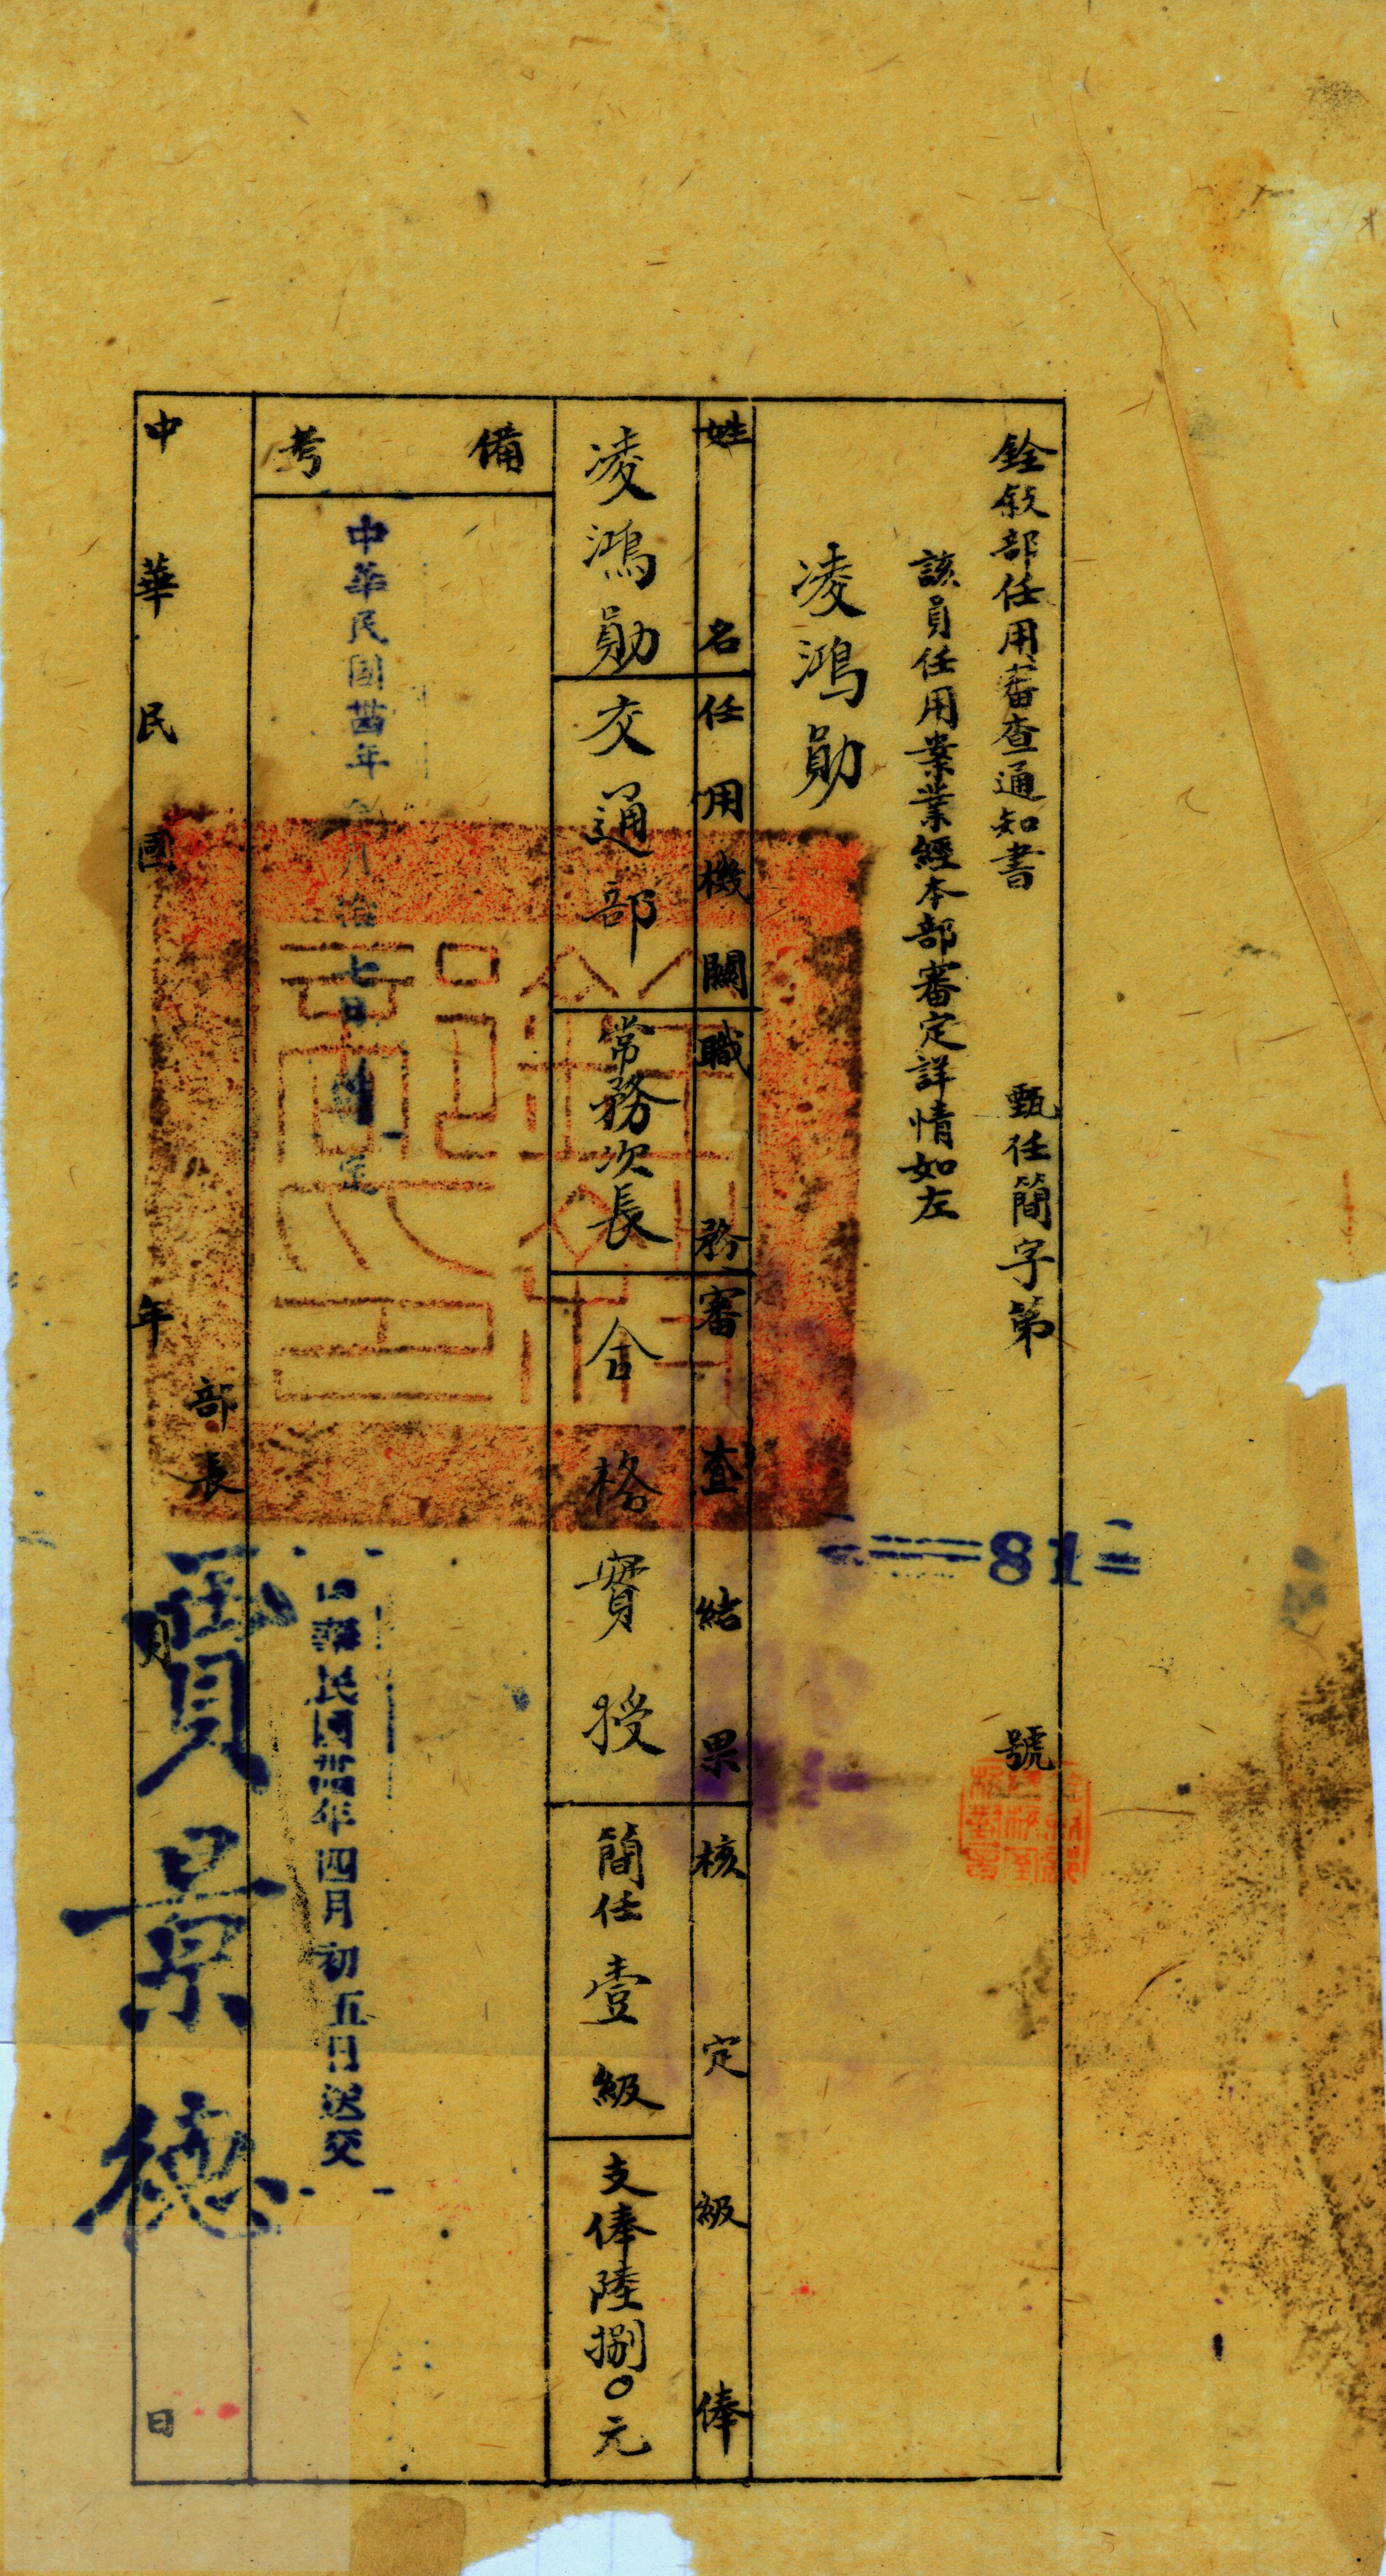 銓敘部任用審查通知書 甄任簡字第 81 號
該員任用案業經本部審定詳情如左
凌鴻勛
姓名 任用機關 職務 審查結果 核定級俸
凌鴻勛 交通部 常務次長 合格實授 簡任壹級 支俸陸捌〇元
備考
中華民國卅四年 月 七日 定
中華民國卅四年四月初五日送交
部長 賈景德
中華民國 年 月 日